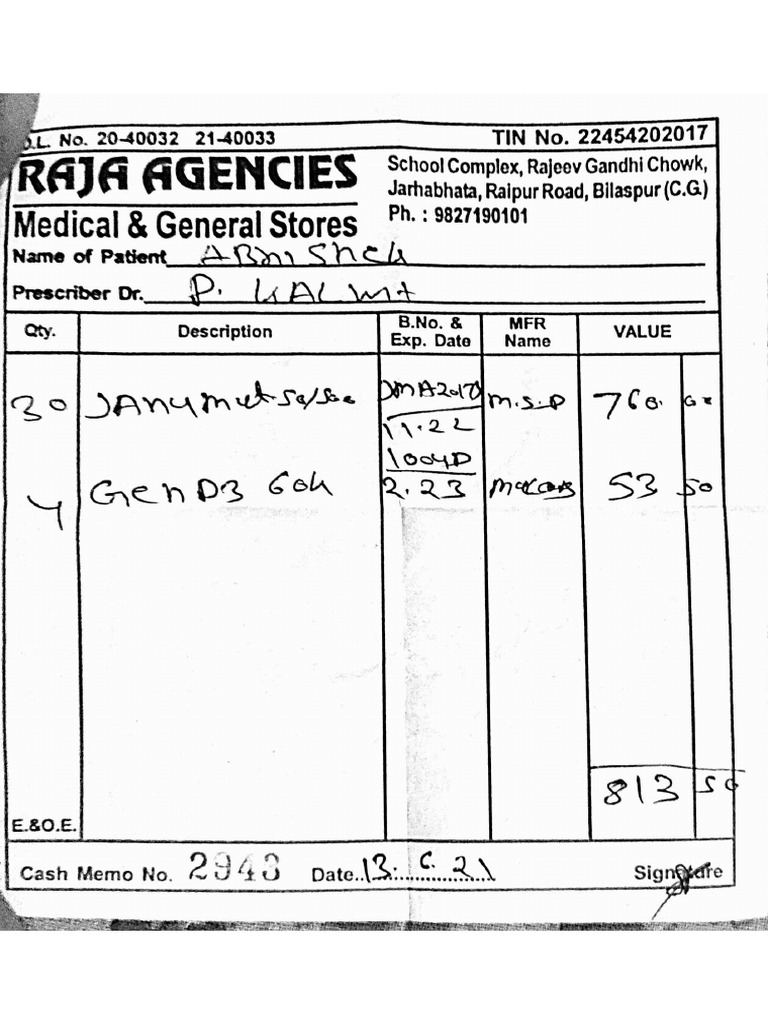 D.L. No. 20-40032 21-40033 TIN No. 22454202017
RAJA AGENCIES
Medical & General Stores
School Complex, Rajeev Gandhi Chowk,
Jarhabhata, Raipur Road, Bilaspur (C.G.)
Ph. : 9827190101
Name of Patient ABhishek
Prescriber Dr. P.
Qty. Description B.No. & Exp. Date MFR Name VALUE
30 JANuMet 50/500 M.S.D 760. 00
11.22
1004D
4 Gen D3 60k 2.23 53 50
813 50
E.&O.E.
Cash Memo No. 2943 Date..13. 6. 21 Signature